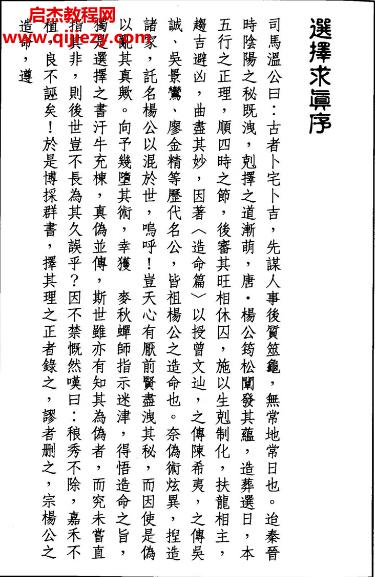 启杰教程网
www.qijiezy.com
選擇求真序
司馬溫公曰：古者卜宅卜吉，先謀人事後質筮龜，無常地常日也。迨秦晉
時陰陽之秘既洩，剋擇之道漸萌，唐·楊公筠松闡發其蘊，造葬選日，本
五行之正理，順四時之節，後審其旺相休囚，施以生剋制化，扶龍相主，
趨吉避凶，曲盡其妙，因著〈造命篇〉以授曾文辿，之傳陳希夷，之傳吳
誠、吳景鸞、廖金精等歷代名公，皆祖楊公之造命也。奈偽術炫異，捏造
諸家，託名楊公以混於世，嗚呼！豈天心有厭前賢盡洩其秘，而因使是偽
以亂其真歟。向予幾墮其術，幸獲　麥秋蟬師指示迷津，得悟造命之旨，
獨是選擇之書汗牛充棟，真偽並傳，斯世雖亦有知其為偽者，而究未嘗直
指其非，則後世豈不長為其久誤乎？因不禁慨然嘆曰：稂秀不除，嘉禾不
植，良不誣矣！於是博採群書，擇其理之正者錄之，謬者刪之，宗楊公之
造命，遵